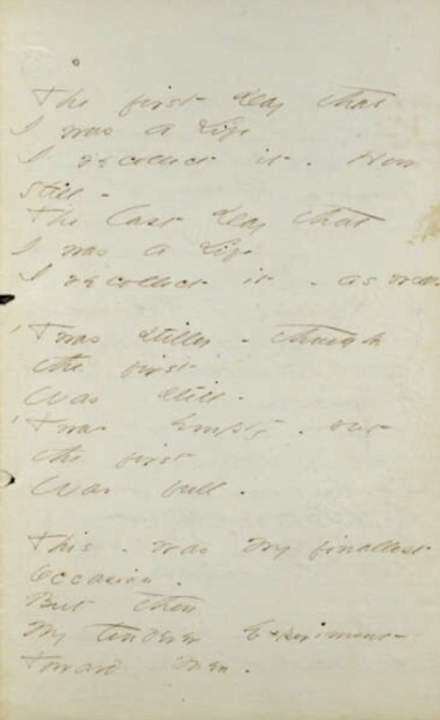 The first Day that
I was a Life
I recollect it - How
still -
The last Day that
I was a Life
I recollect it - as well -
'Twas stiller - though
the first
Was still -
'Twas Empty - but
the first
Was full -
This - was my finallest
Occasion -
But then
My tenderer Experiment
Toward Men -